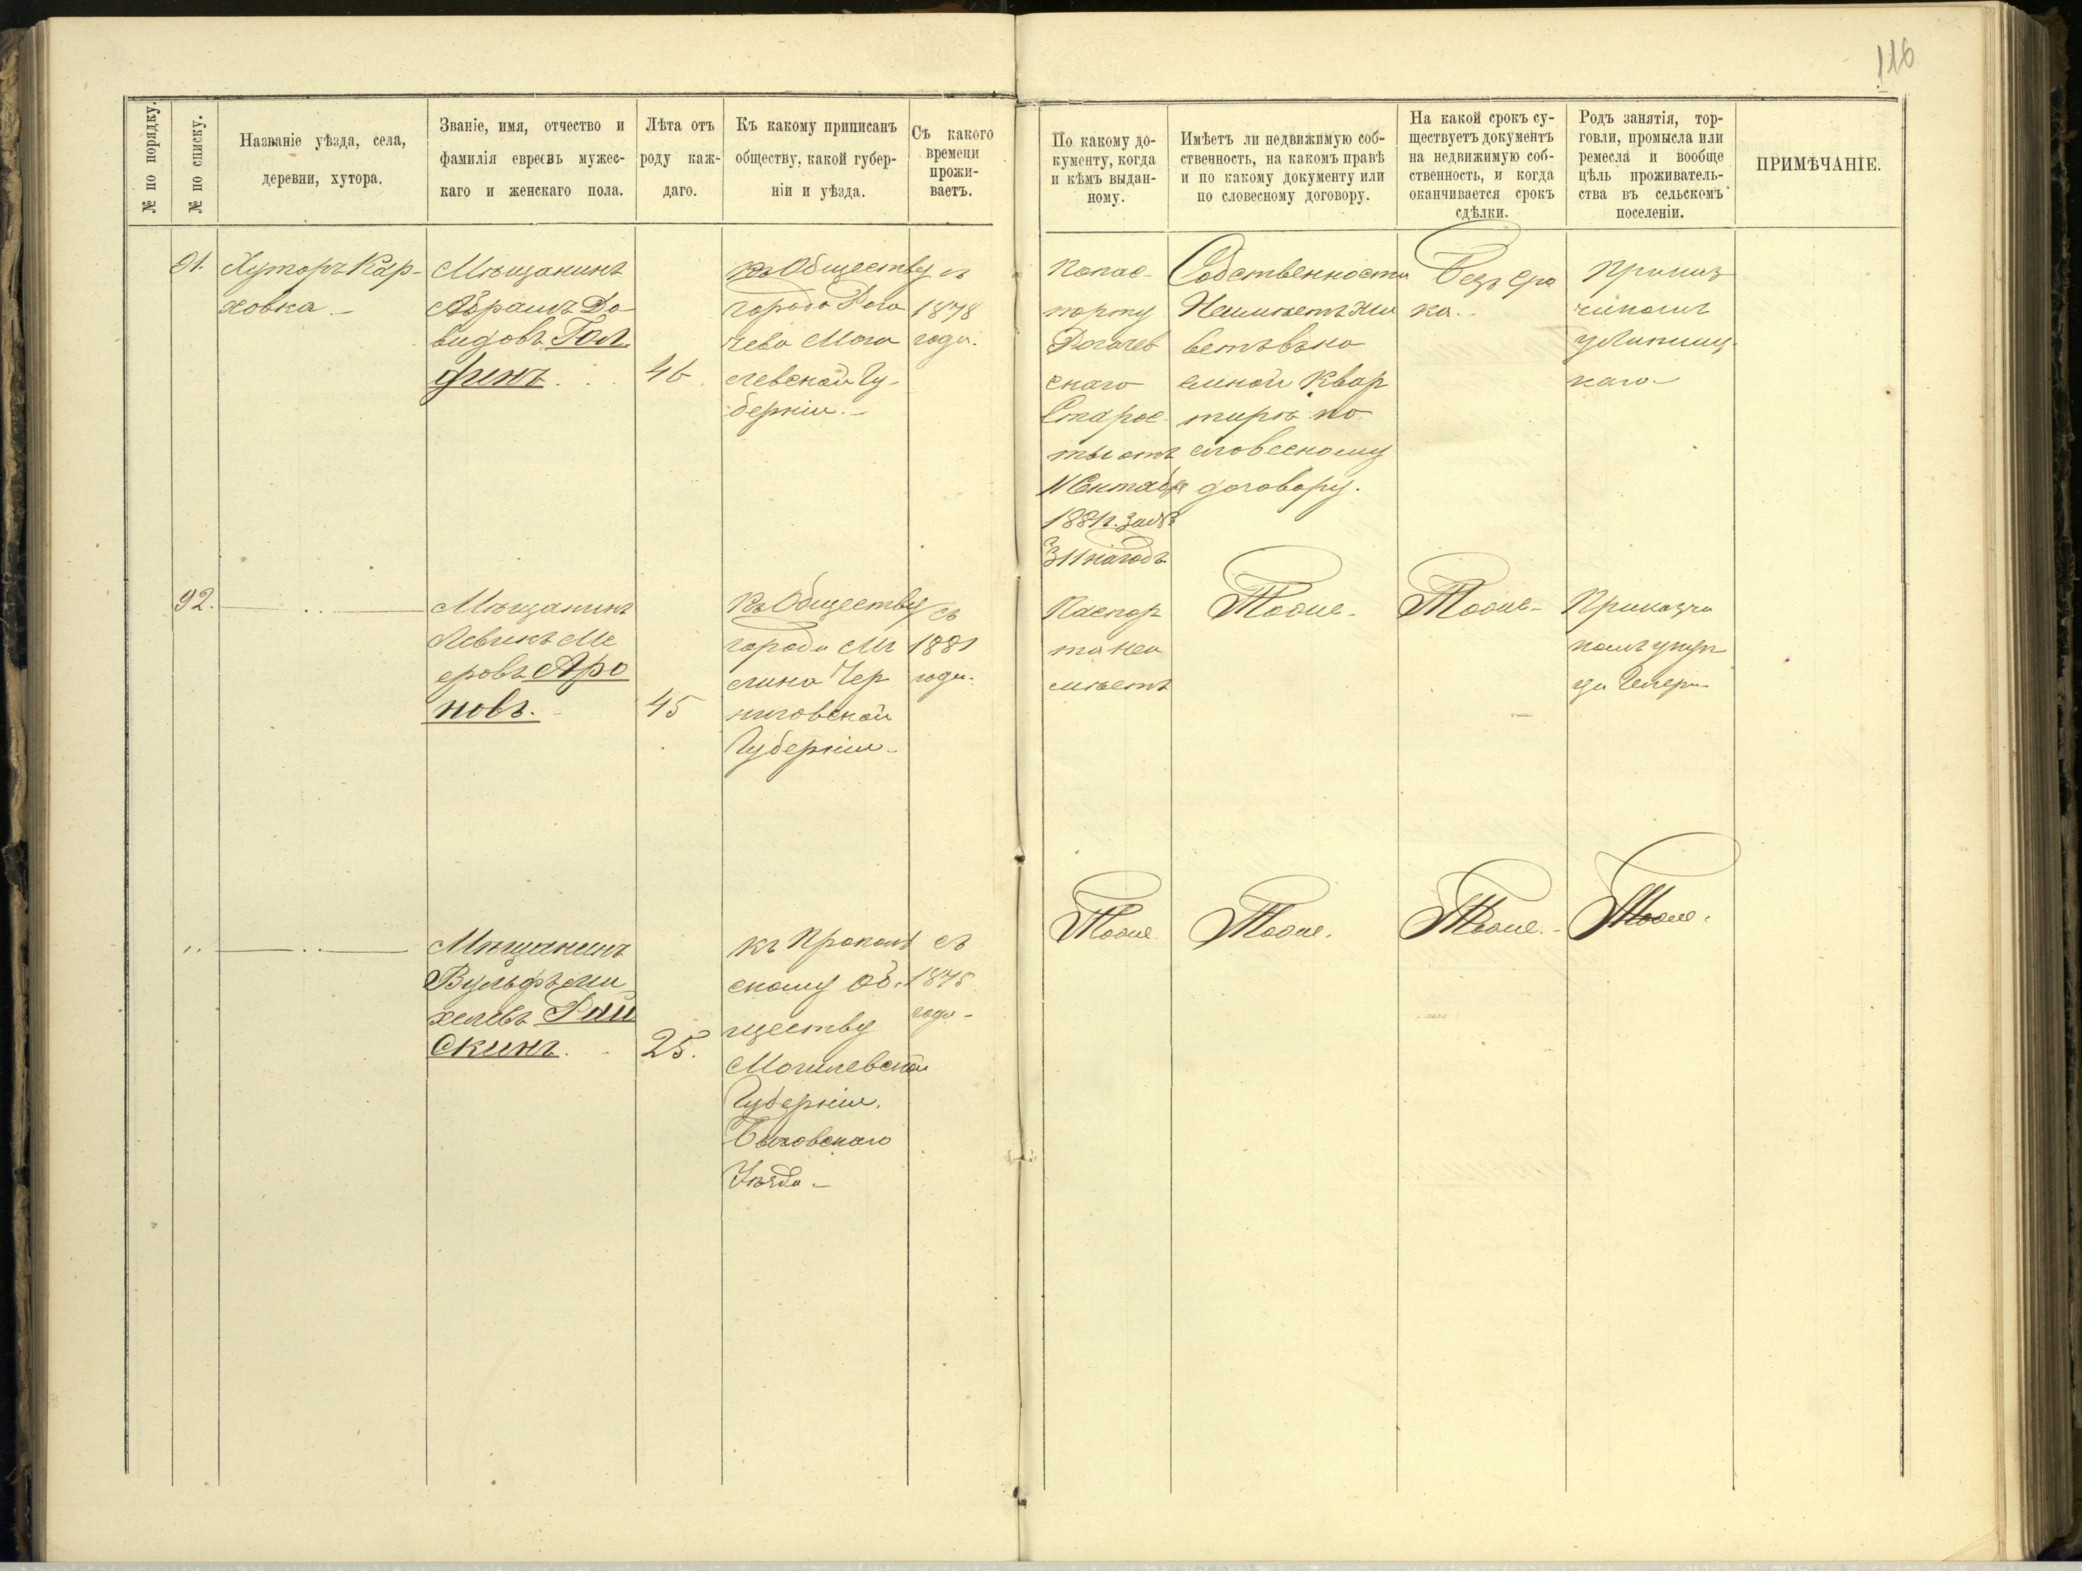 116
№ по порядку.
№ по списку.
Названіе уѣзда, села,
деревни, хутора.
Званіе, имя, отчество и
фамилія евреевъ мужес-
каго и женскаго пола.
Лѣта отъ
роду каж-
даго.
Къ какому приписанъ
обществу, какой губер-
ніи и уѣзда.
Съ какого
времени
прожи-
ваетъ.
По какому до-
кументу, когда
и кѣмъ выдан-
ному.
Имѣетъ ли недвижимую соб-
ственность, на какомъ правѣ
и по какому документу или
по словесному договору.
На какой срокъ су-
ществуетъ документъ
на недвижимую соб-
ственность, и когда
оканчивается срокъ
сдѣлки.
Родъ занятія, тор-
говли, промысла или
ремесла и вообще
цѣль проживатель-
ства въ сельскомъ
поселеніи.
ПРИМѢЧАНІЕ.
91.
Хуторъ Кар-
ховка
Мѣщанинъ
Абрамъ До-
видовъ Гол
финъ
46
Къ Обществу
города Рога
чева Моги
левской Гу-
берніи.
съ
1878
года.
По пас-
порту
Рогачев
скаго
Старос-
ты отъ
11 Октября
1881 г. за №
311 на годъ
Собственности
Неимѣетъ жи
ветъ въ на
емной квар
тирѣ по
словесному
договору.
Безъ сро
ка.
92.
Мѣщанинъ
Левикъ Ме
еровъ Аро
новъ.
45
Къ Обществу
города Мг
лина Чер
ниговской
Губерніи
съ
1881
года.
Паспор
та неи
мѣетъ
Тоже
Тоже
Приказчи
комъ у куп
ца
Мѣщанинъ
Вульфъ Ми
хелевъ Рай
скинъ.
25.
къ
скому Об-
ществу
Могилевской
Губерніи.
Быховскаго
Уѣзда
съ
1875
года
Тоже
Тоже.
Тоже.
Тоже.